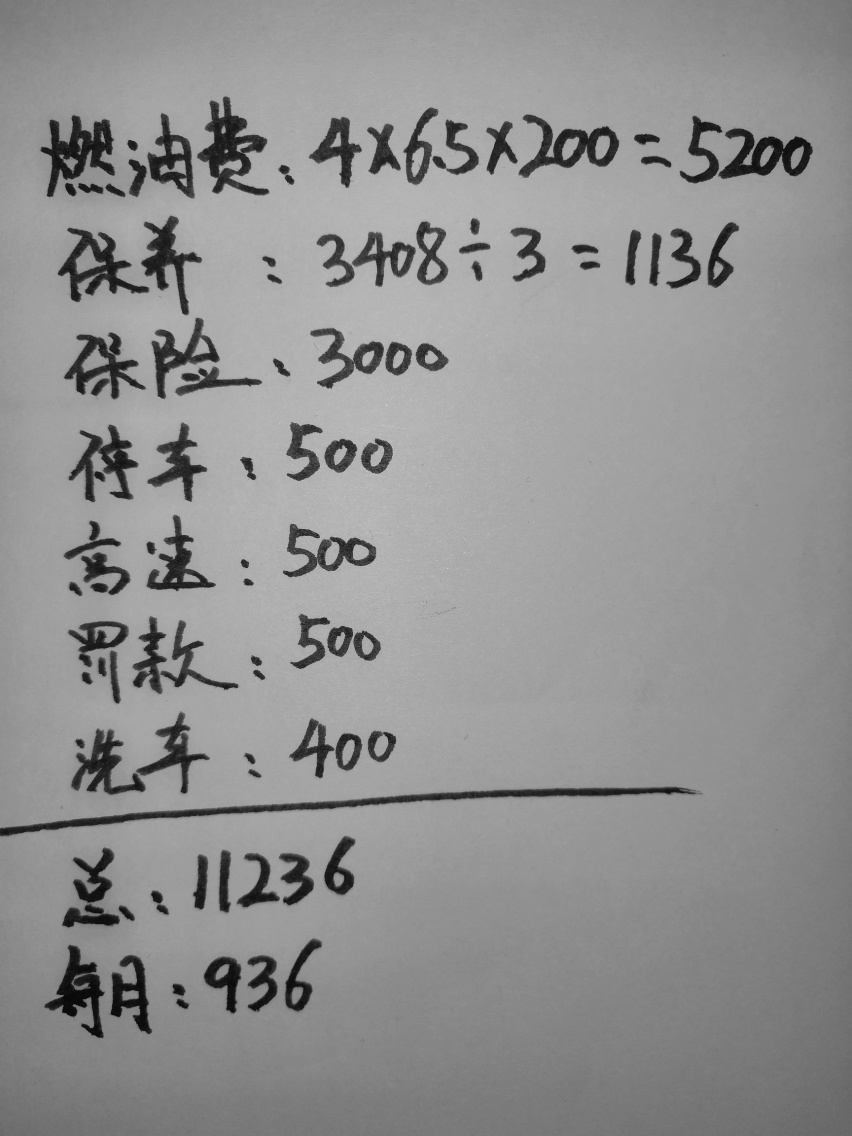 燃油费：4×6.5×200=5200
保养：3408÷3=1136
保险：3000
停车：500
高速：500
罚款：500
洗车：400
总：11236
每月：936